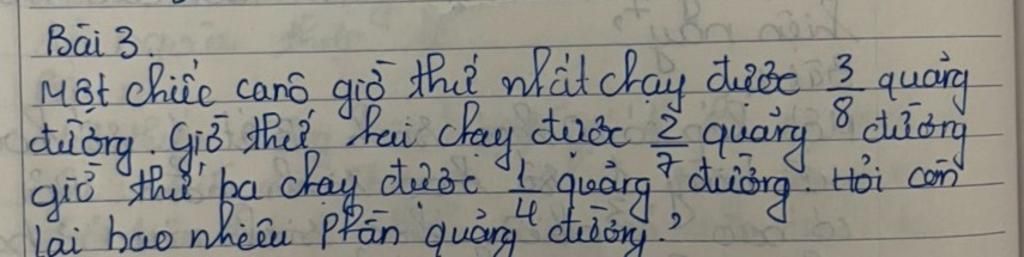 Bài 3.
Một chiếc canô giờ thứ nhất chạy được 3/8 quãng
đường. Giờ thứ hai chạy được 2/7 quãng đường
giờ thứ ba chạy được 1/4 quãng đường. Hỏi còn
lại bao nhiêu phần quãng đường?